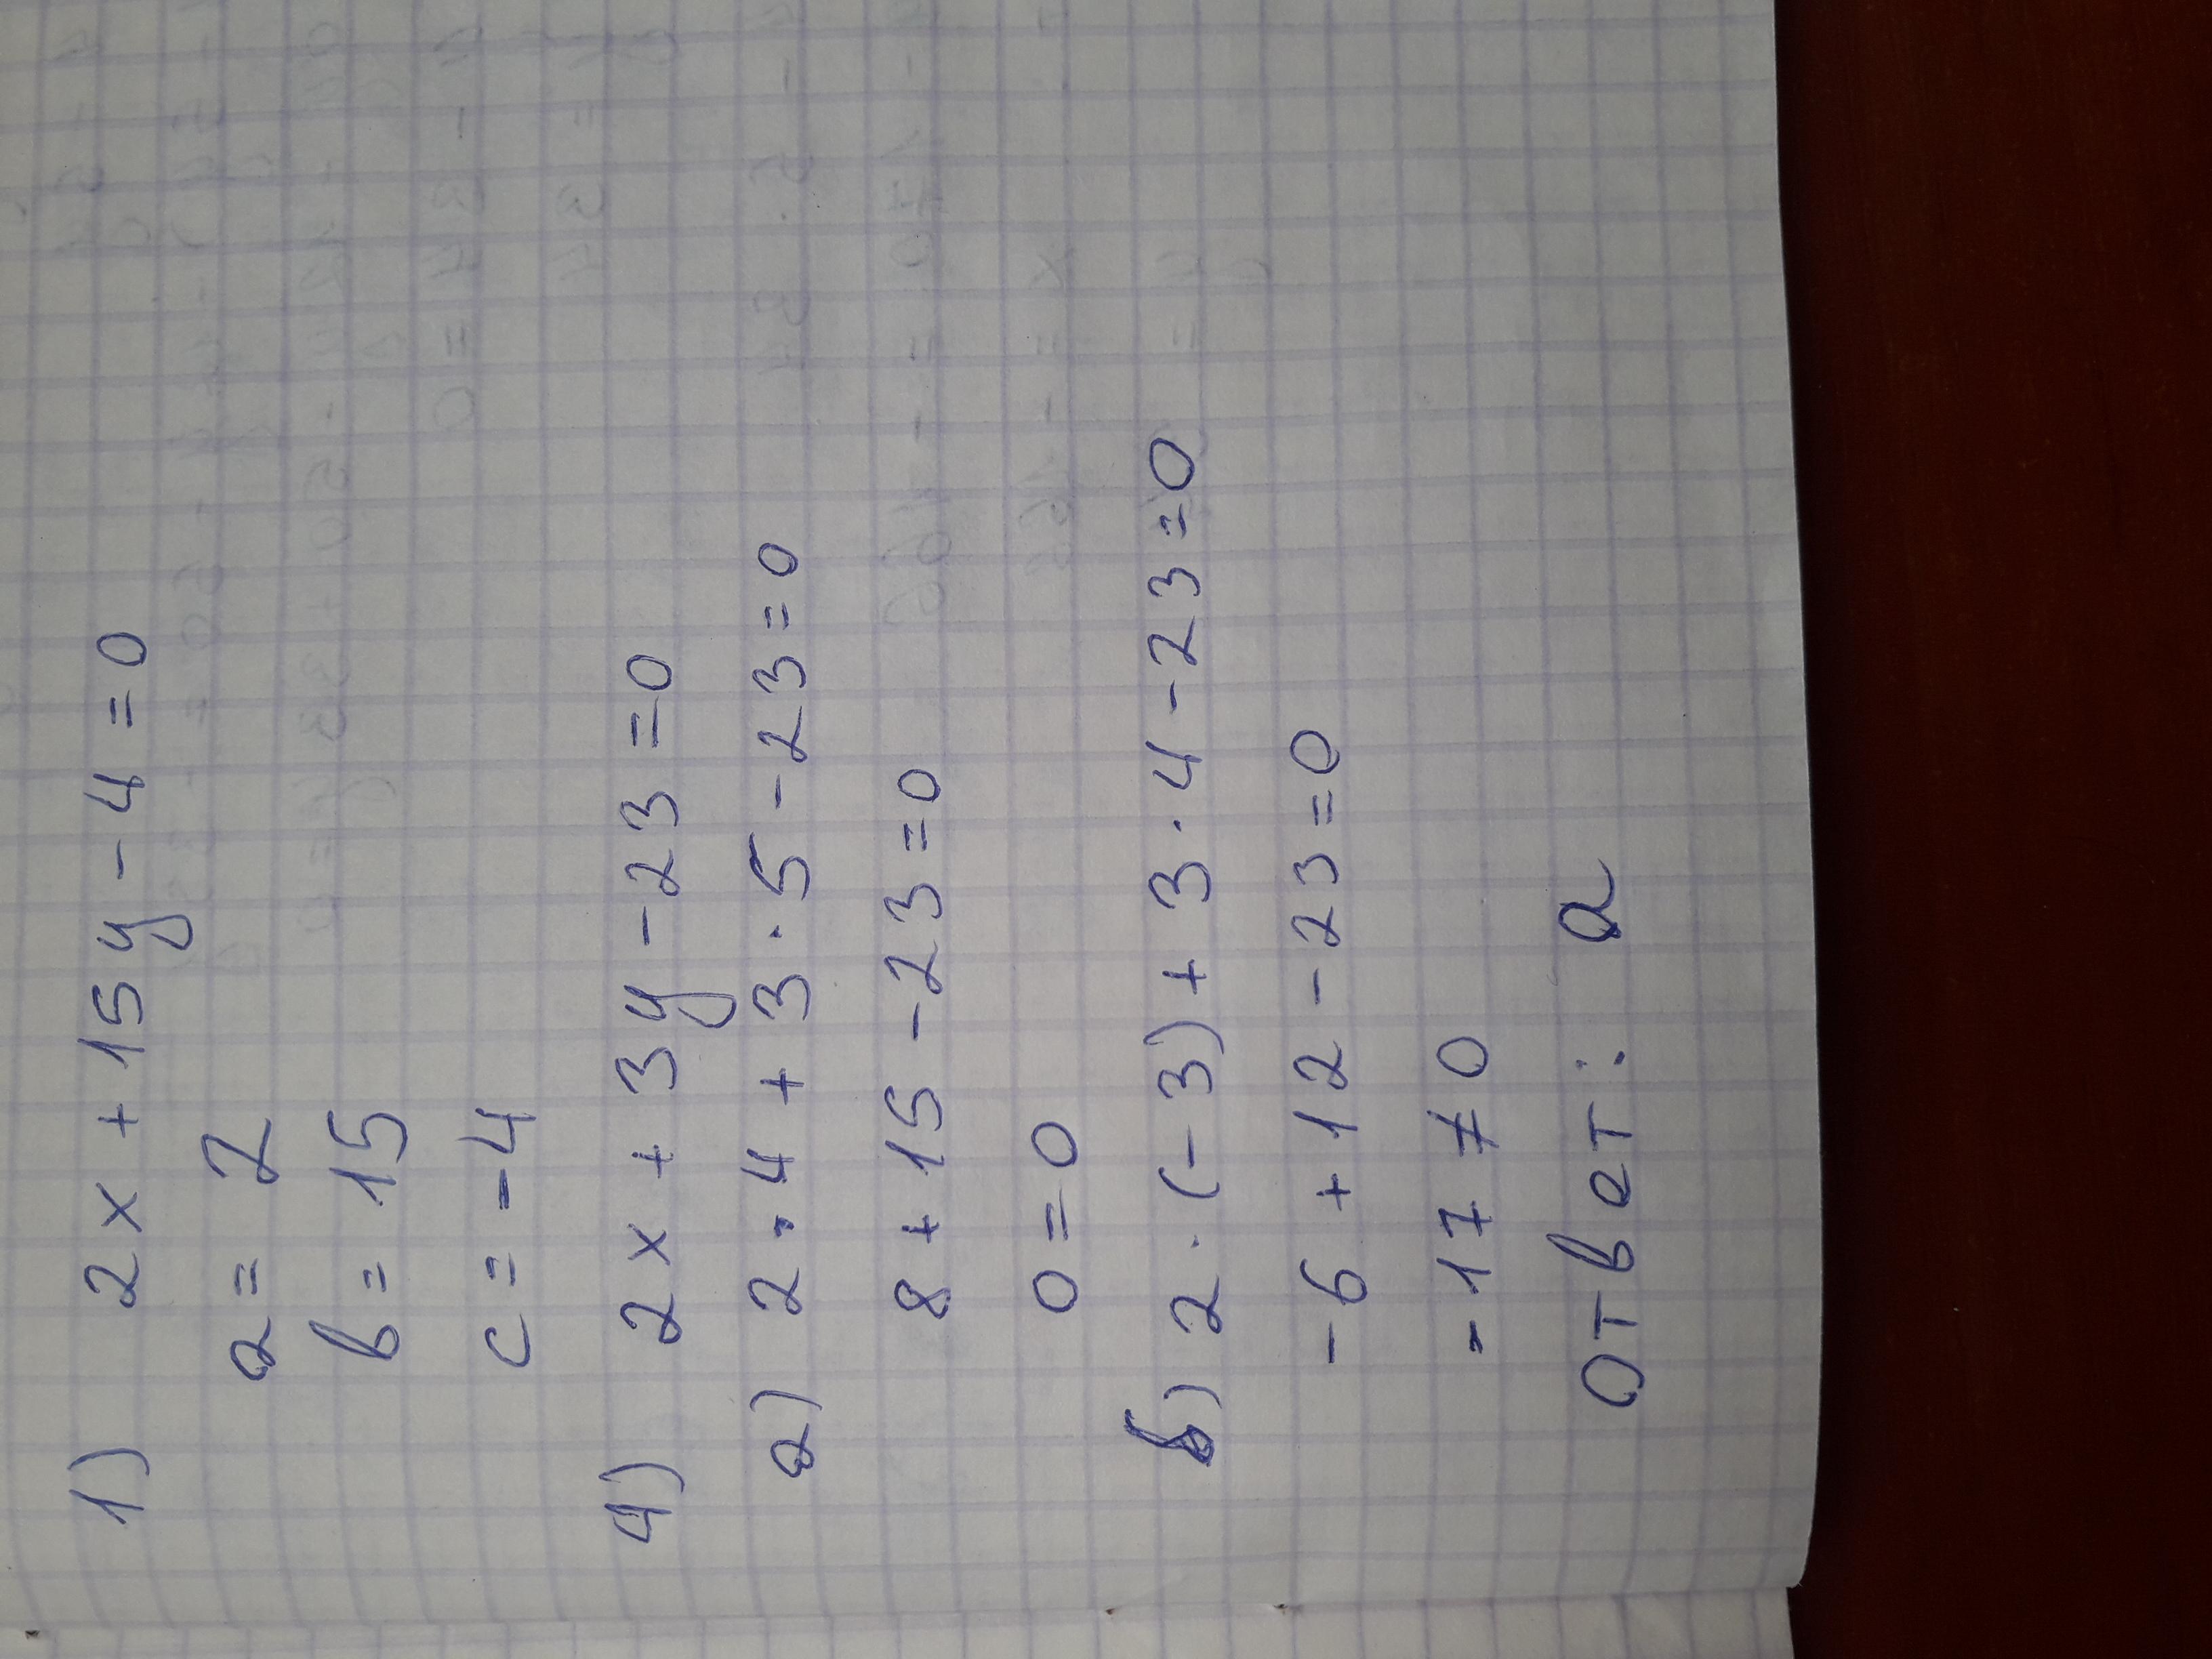 1) 2x + 15y - 4 = 0
a = 2
b = 15
c = -4
4) 2x + 3y - 23 = 0
a) 2 · 4 + 3 · 5 - 23 = 0
8 + 15 - 23 = 0
0 = 0
б) 2 · (-3) + 3 · 4 - 23 = 0
-6 + 12 - 23 = 0
-17 ≠ 0
Ответ: а